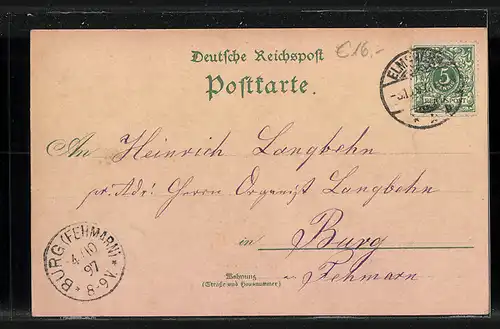 €16,-
Deutsche Reichspost
Postkarte.
5
An Heinrich Langbehn
pr. Adr: Herrn Organist Langbehn
in Burg
a. Fehmarn
Wohnung
(Straße und Hausnummer)
BURG (FEHMARN)
4/10
97
8-9V